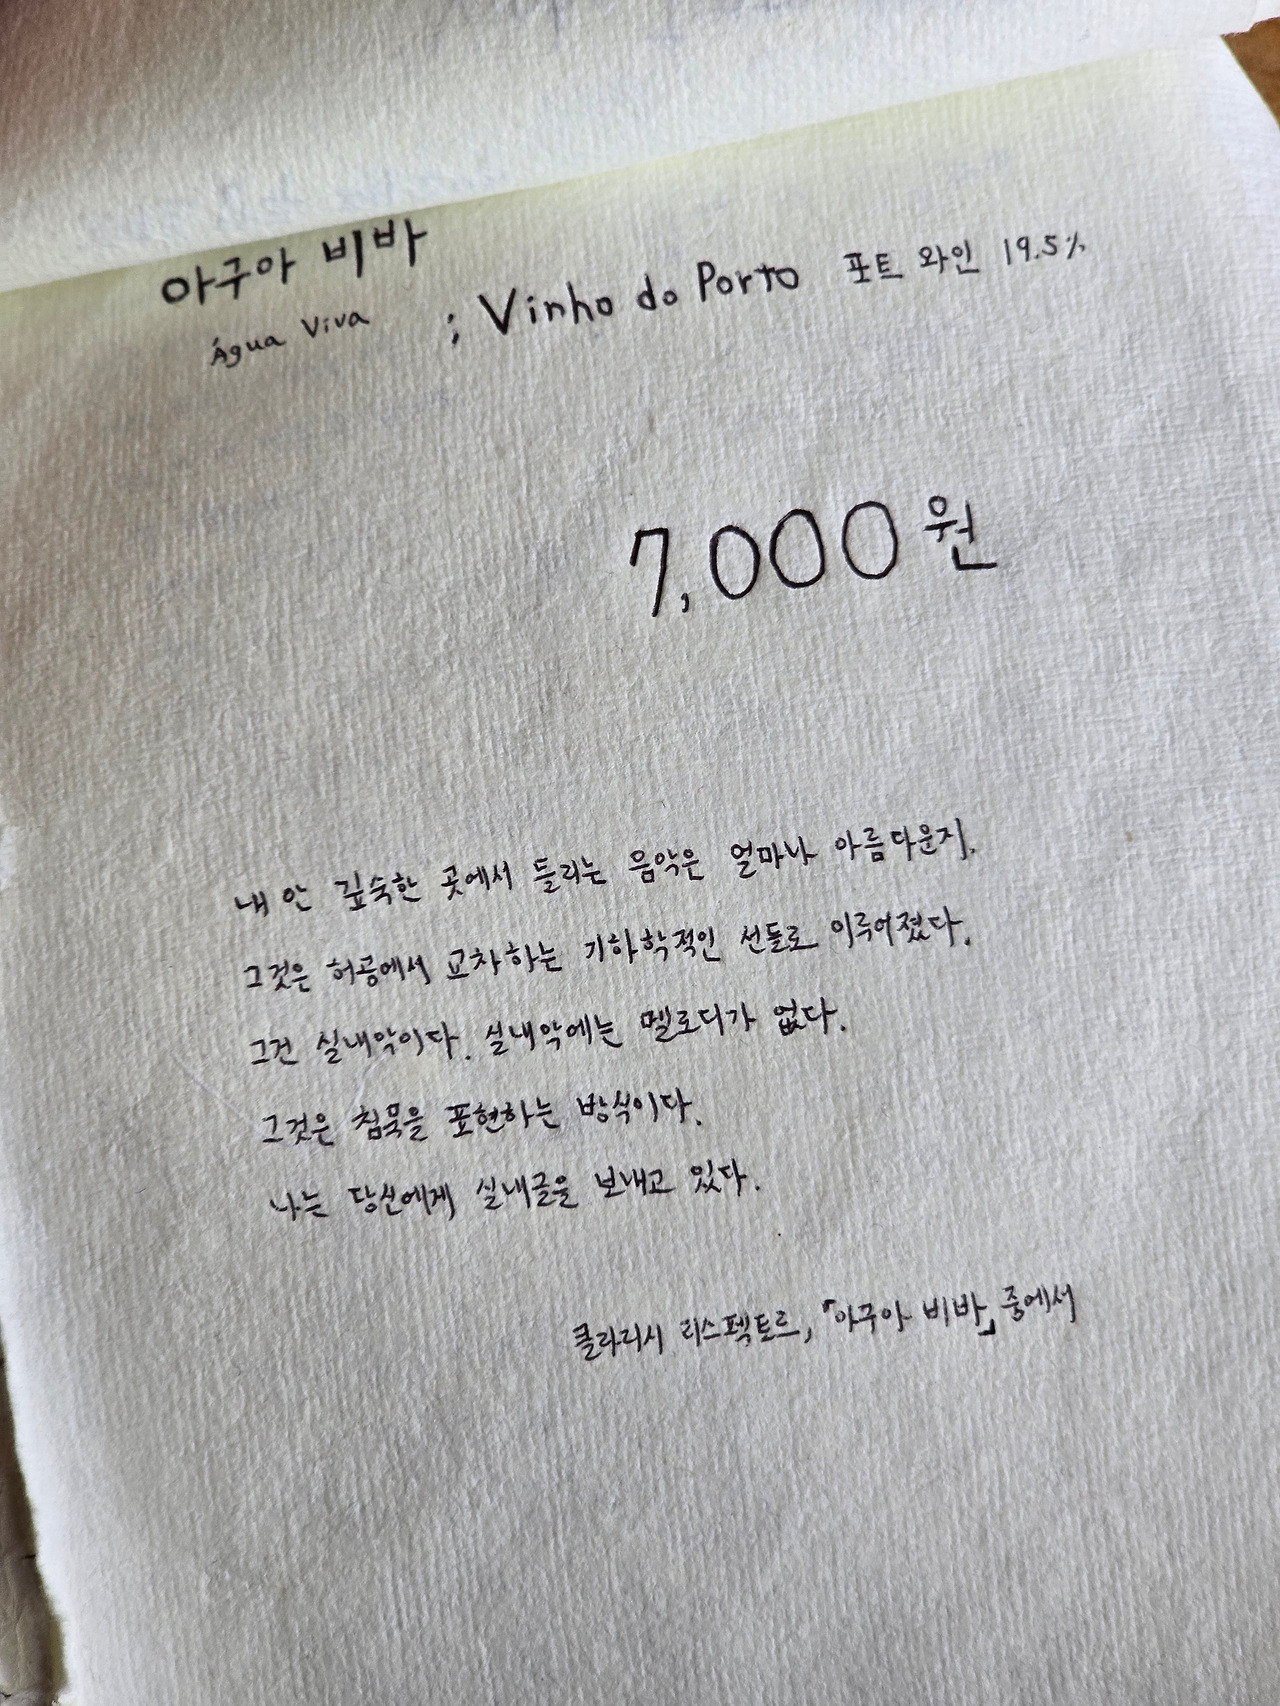 아구아 비바 ; Vinho do Porto 포트 와인 19.5%
Água Viva
7,000원
내 안 깊숙한 곳에서 들리는 음악은 얼마나 아름다운지.
그것은 허공에서 교차하는 기하학적인 선들로 이루어졌다.
그건 실내악이다. 실내악에는 멜로디가 없다.
그것은 침묵을 표현하는 방식이다.
나는 당신에게 실내글을 보내고 있다.
클라리시 리스펙토르, 「아구아 비바」 중에서